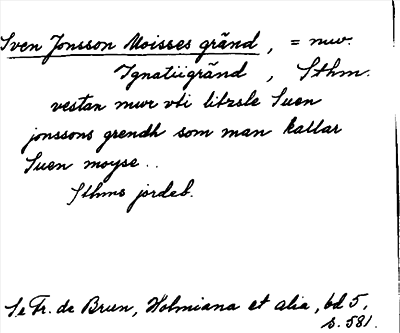 Sven Jonsson Moisses gränd, = nuv.
Ignatiigränd, Sthm.
vestan mwr vti litzsle Suen
jonssons grendh som man kallar
Suen moyse..
Sthms jordeb.
Se Fr. de Brun, Holmiana et alia, bd 5,
s. 581.